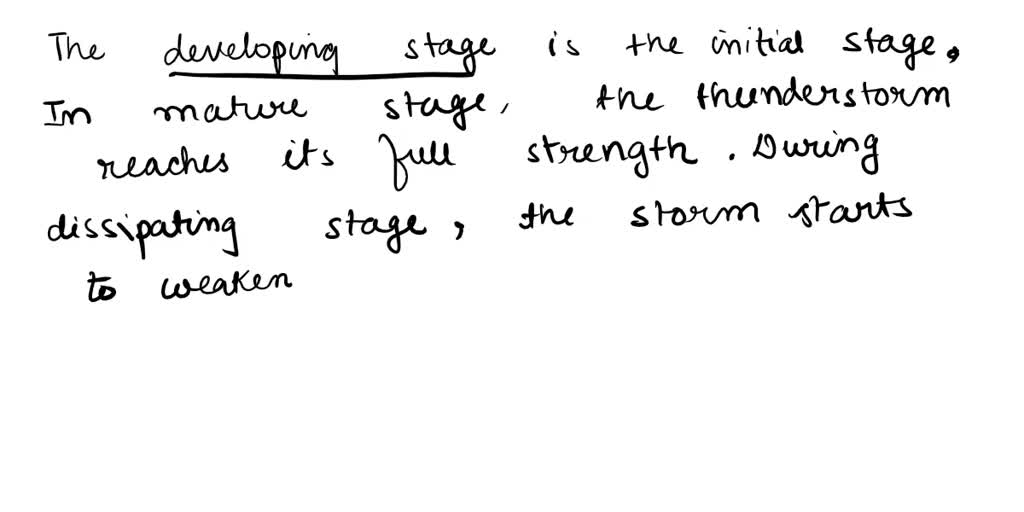 The developing stage is the initial stage.
In mature stage, the thunderstorm
reaches its full strength. During
dissipating stage, the storm starts
to weaken